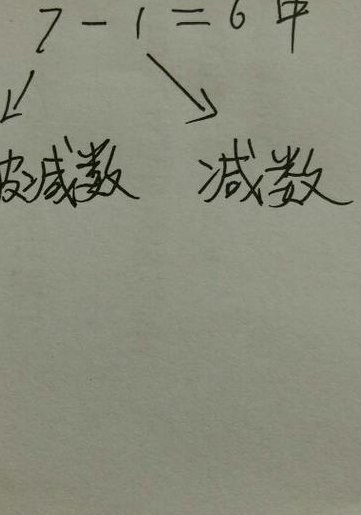 7-1=6中
被减数 减数